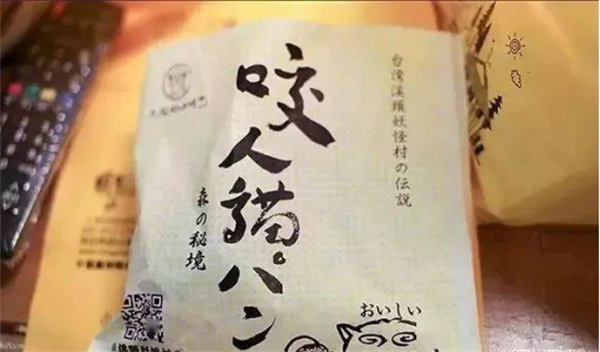 台湾溪頭妖怪村の伝説
咬人猫パン
森の秘境
おいしい